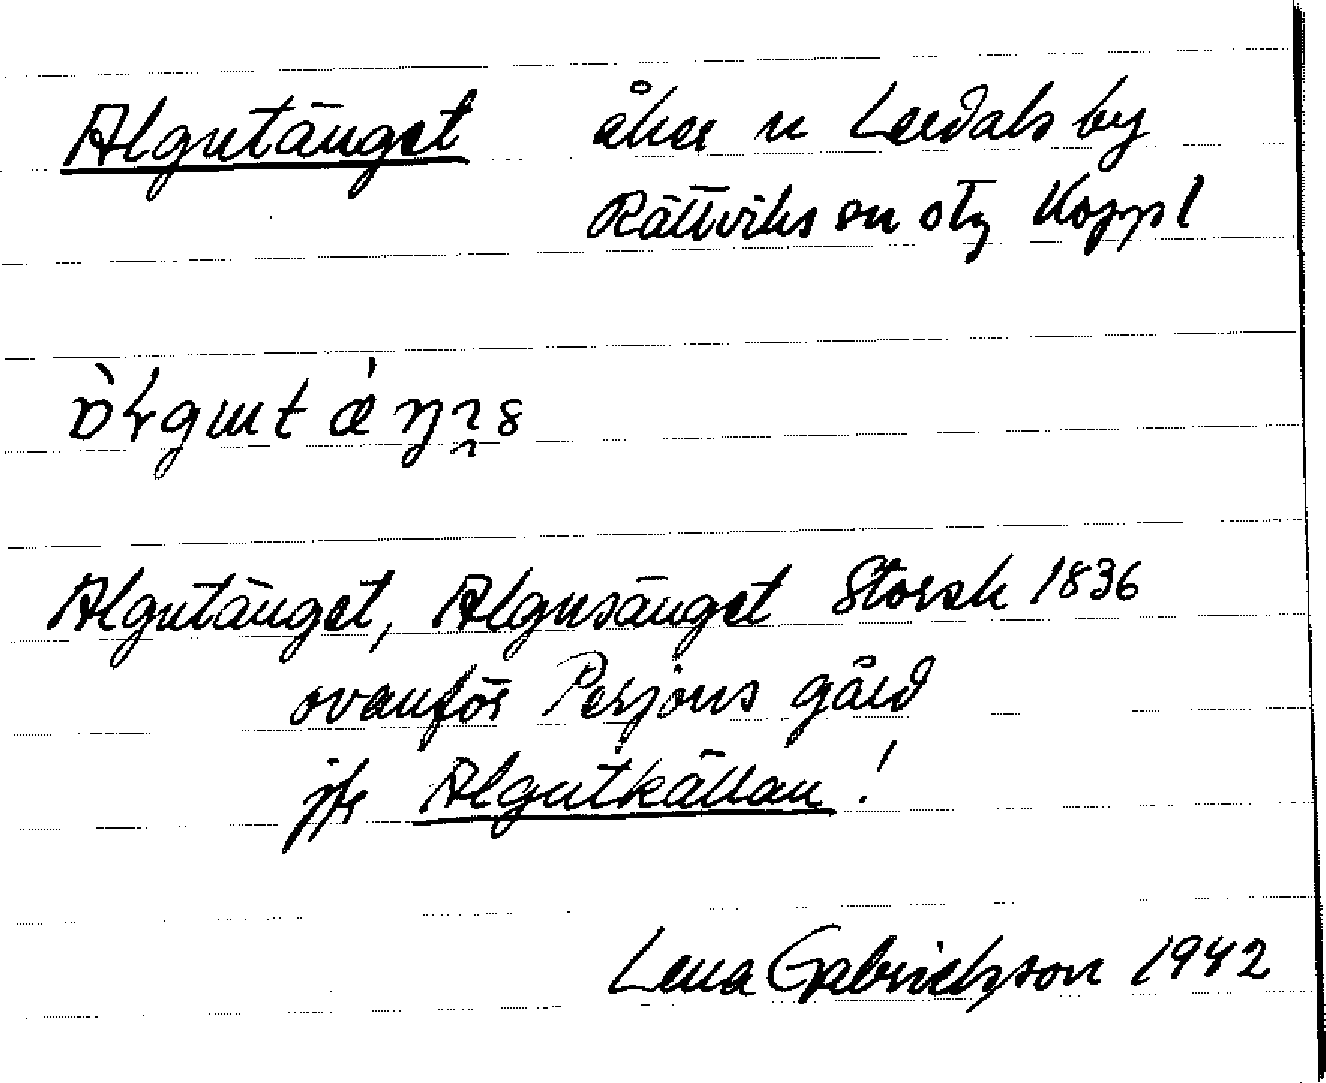 Algutänget åker n Lerdals by
Rättviks sn otg Koppl
Algutänget, Algusänget Storsk 1836
ovanför Persjons gård
jfr Algutkällan!
Lena Gabrielsson 1942